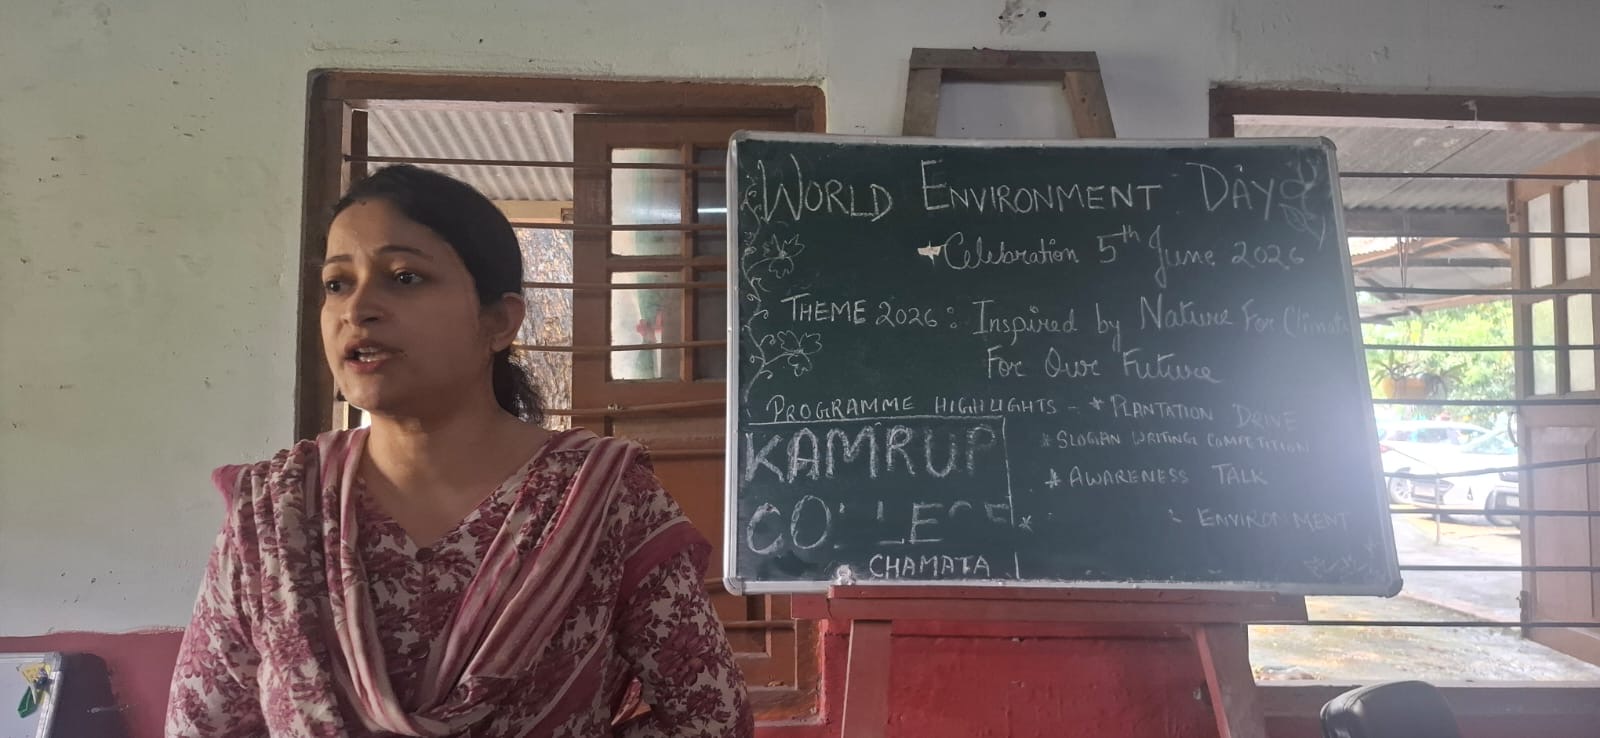 WORLD ENVIRONMENT DAY
Celebration 5th June 2026
THEME 2026: Inspired by Nature For Climate
For Our Future
PROGRAMME HIGHLIGHTS - * PLANTATION DRIVE
* SLOGAN WRITING COMPETITION
* AWARENESS TALK
* : ENVIRONMENT
KAMRUP
COLLEGE
CHAMATA